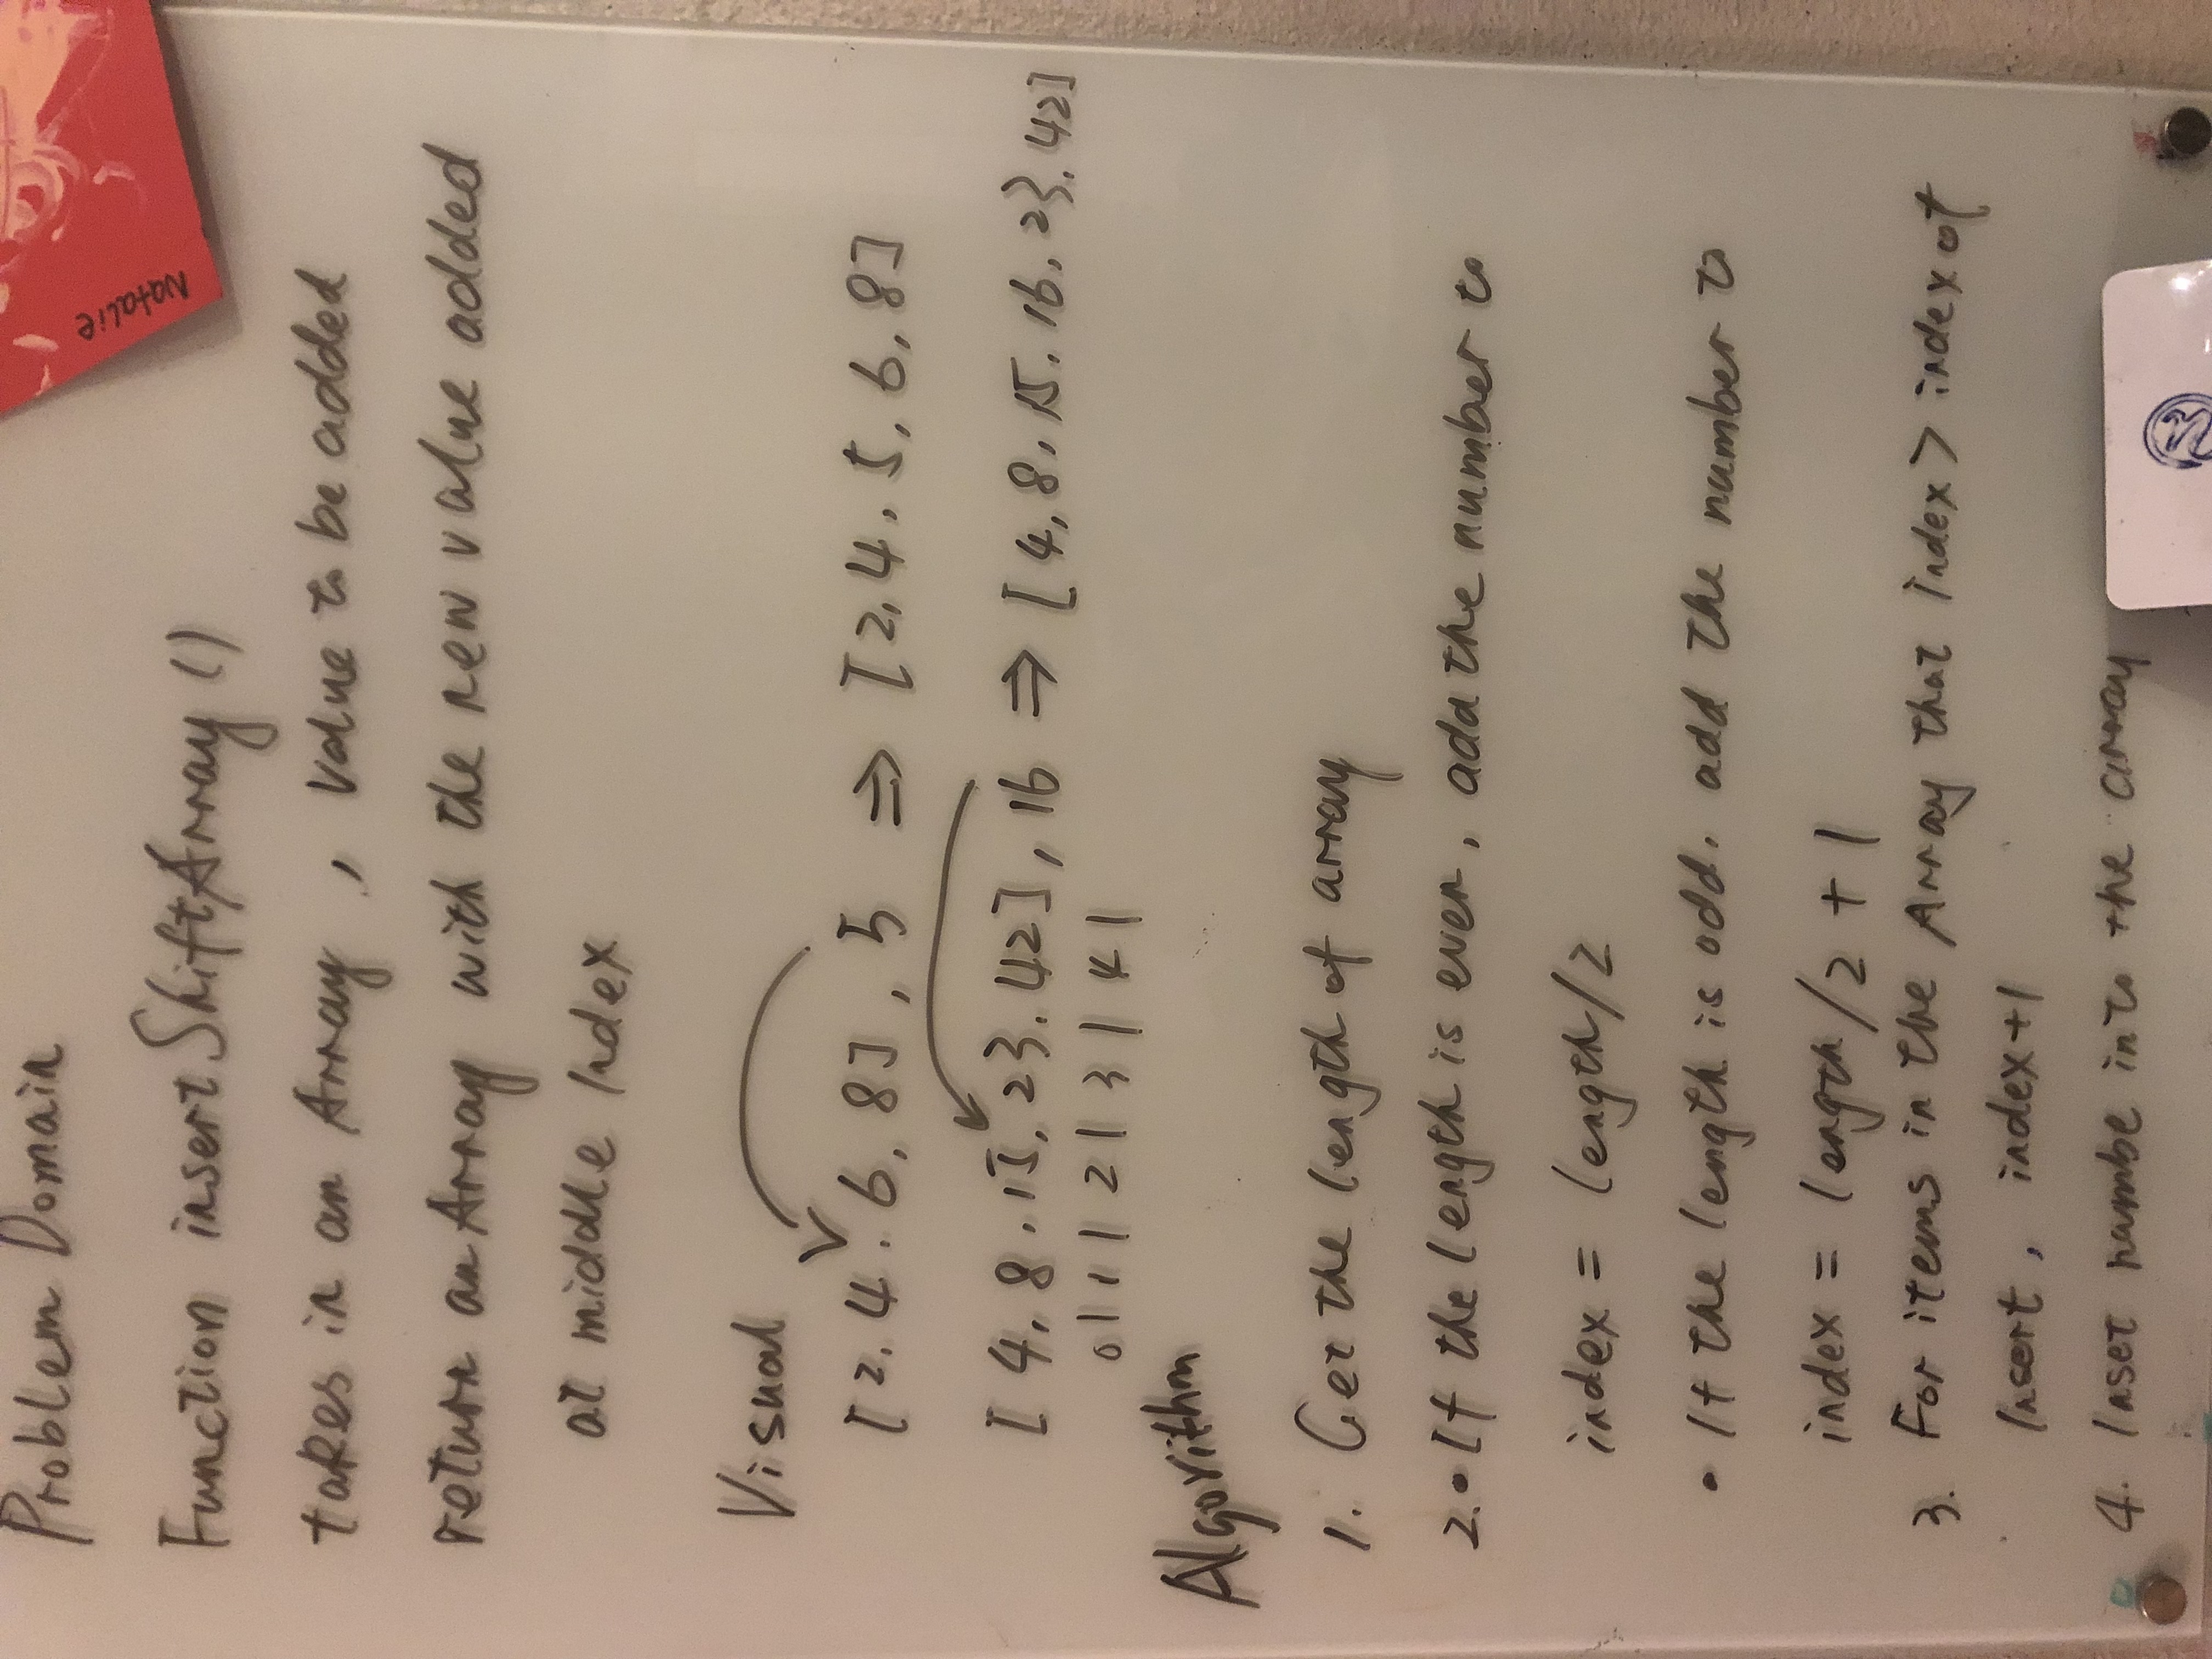 Problem Domain
Natalie
Function insertShiftArray ()
takes in an Array , value to be added
return an Array with the new value added
at middle Index
Visual
[2, 4, 6, 8], 5 ⇒ [2, 4, 5, 6, 8]
[4, 8, 15, 23, 42], 16 ⇒ [4, 8, 15, 16, 23, 42]
0| 1| 2| 3| 4|
Algorithm
1. Get the length of array
2. • If the length is even, add the number to
index = length/2
• If the length is odd, add the number to
index = length/2 + 1
3. For items in the Array that index > index of
Insert, index+1
4. Inset numbe into the array